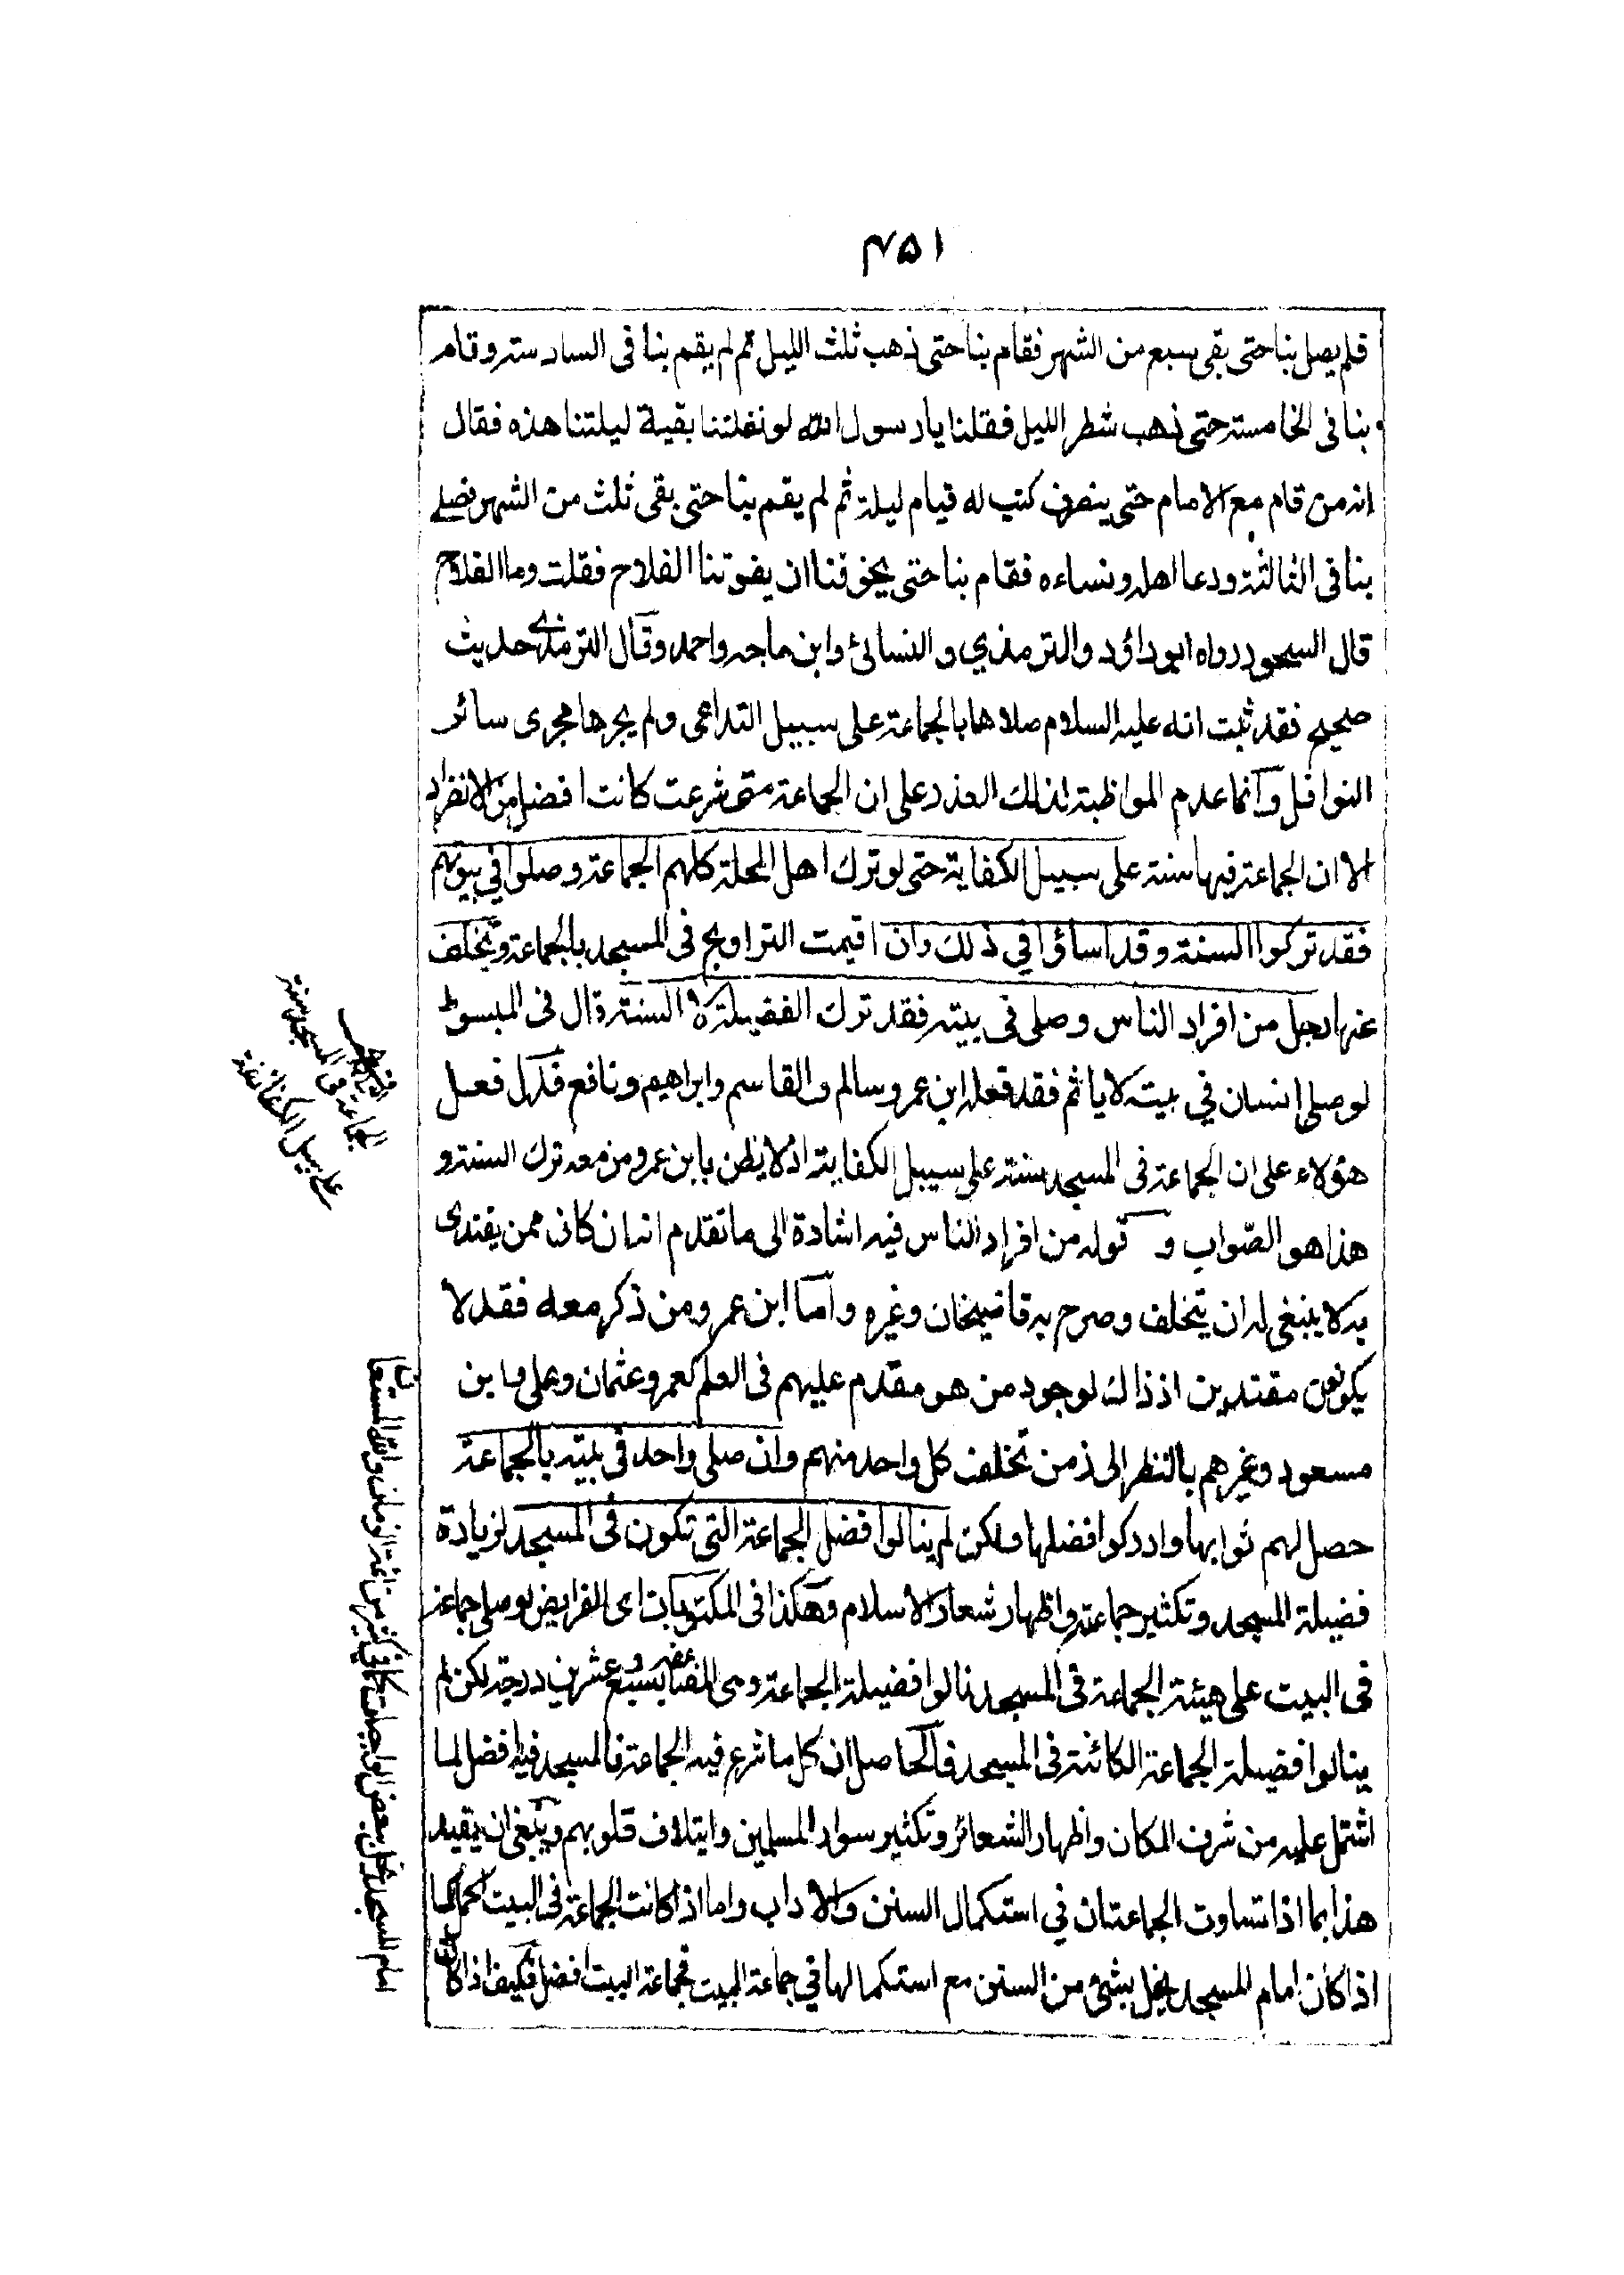 ۴۵۱
فلم يصل بنا حتى بقى سبع من الشهر فقام بنا حتى ذهب ثلث الليل ثم لم يقم بنا فى السادسة وقام
بنا فى الخامسة حتى ذهب شطر الليل فقلنا يا رسول الله لو نفلتنا بقية ليلتنا هذه فقال
انه من قام مع الامام حتى ينصرف كتب له قيام ليلة ثم لم يقم بنا حتى بقى ثلث من الشهر فصلى
بنا فى الثالثة ودعا اهله ونساءه فقام بنا حتى يخوفنا ان يفوتنا الفلاح فقلت وما الفلاح
قال السحور رواه ابو داؤد والترمذي والنسائئ وابن ماجه واحمد وقال الترمذى حديث
صحيح فقد ثبت انه عليه السلام صلاها بالجماعة على سبيل التداعى ولم يجرها مجرى سائر
النوافل وانما عدم المواظبة لذلك العذر على ان الجماعة متى شرعت كانت افضل من الانفراد
الا ان الجماعة فيها سنة على سبيل الكفاية حتى لو ترك اهل المحلة كلهم الجماعة وصلوا في بيوتهم
فقد تركوا السنة وقد اساؤا في ذلك وان اقيمت التراويح فى المسجد بالجماعة وتخلف
عنها رجل من افراد الناس وصلى فى بيته فقد ترك الفضيلة لا السنة قال فى المبسوط
لو صلى انسان في بيته لا ياثم فقد فعله ابن عمر وسالم والقاسم وابراهيم ونافع فدل فعل
هؤلاء على ان الجماعة فى المسجد سنة على سبيل الكفاية اذ لا يظن بابن عمر ومن معه ترك السنة و
هذا هو الصواب و قوله من افراد الناس فيه اشارة الى ما تقدم انه ان كان ممن يقتدى
به لا ينبغى له ان يتخلف وصرح به قاضيخان وغيره واما ابن عمر ومن ذكر معه فقد لا
يكونون مقتدين اذ ذاك لوجود من هو مقدم عليهم فى العلم كعمر وعثمان وعلى وابن
مسعود وغيرهم بالنظر الى زمن تخلف كل واحد منهم وان صلى واحد فى بيته بالجماعة
حصل لهم ثوابها وادركوا فضلها ولكن لم ينالوا فضل الجماعة التى تكون فى المسجد لزيادة
فضيلة المسجد وتكثير جماعته واظهار شعار الاسلام وهكذا فى المكتوبات اى الفرايض لو صلى جماعة
فى البيت على هيئة الجماعة فى المسجد نالوا فضيلة الجماعة وهى المضاعفة بسبع وعشرين درجة لكن لم
ينالوا فضيلة الجماعة الكائنة فى المسجد فالحاصل ان كل ما شرع فيه الجماعة فالمسجد فيه افضل لما
اشتمل عليه من شرف المكان واظهار الشعائر وتكثير سواد المسلمين وايتلاف قلوبهم وينبغى ان يقيد
هذا بما اذا تساوت الجماعتان في استكمال السنن والاداب واما اذا كانت الجماعة فى البيت اكمل كما
اذا كان امام المسجد يخل بشئ من السنن مع استكمالها في جماعة البيت فجماعة البيت افضل فكيف اذا كان
الجماعة فى المسجد سنة
على سبيل الكفاية
امام المسجد يخل ببعض الواجبات كما فى كثير من ائمة الزمان والله المستعان